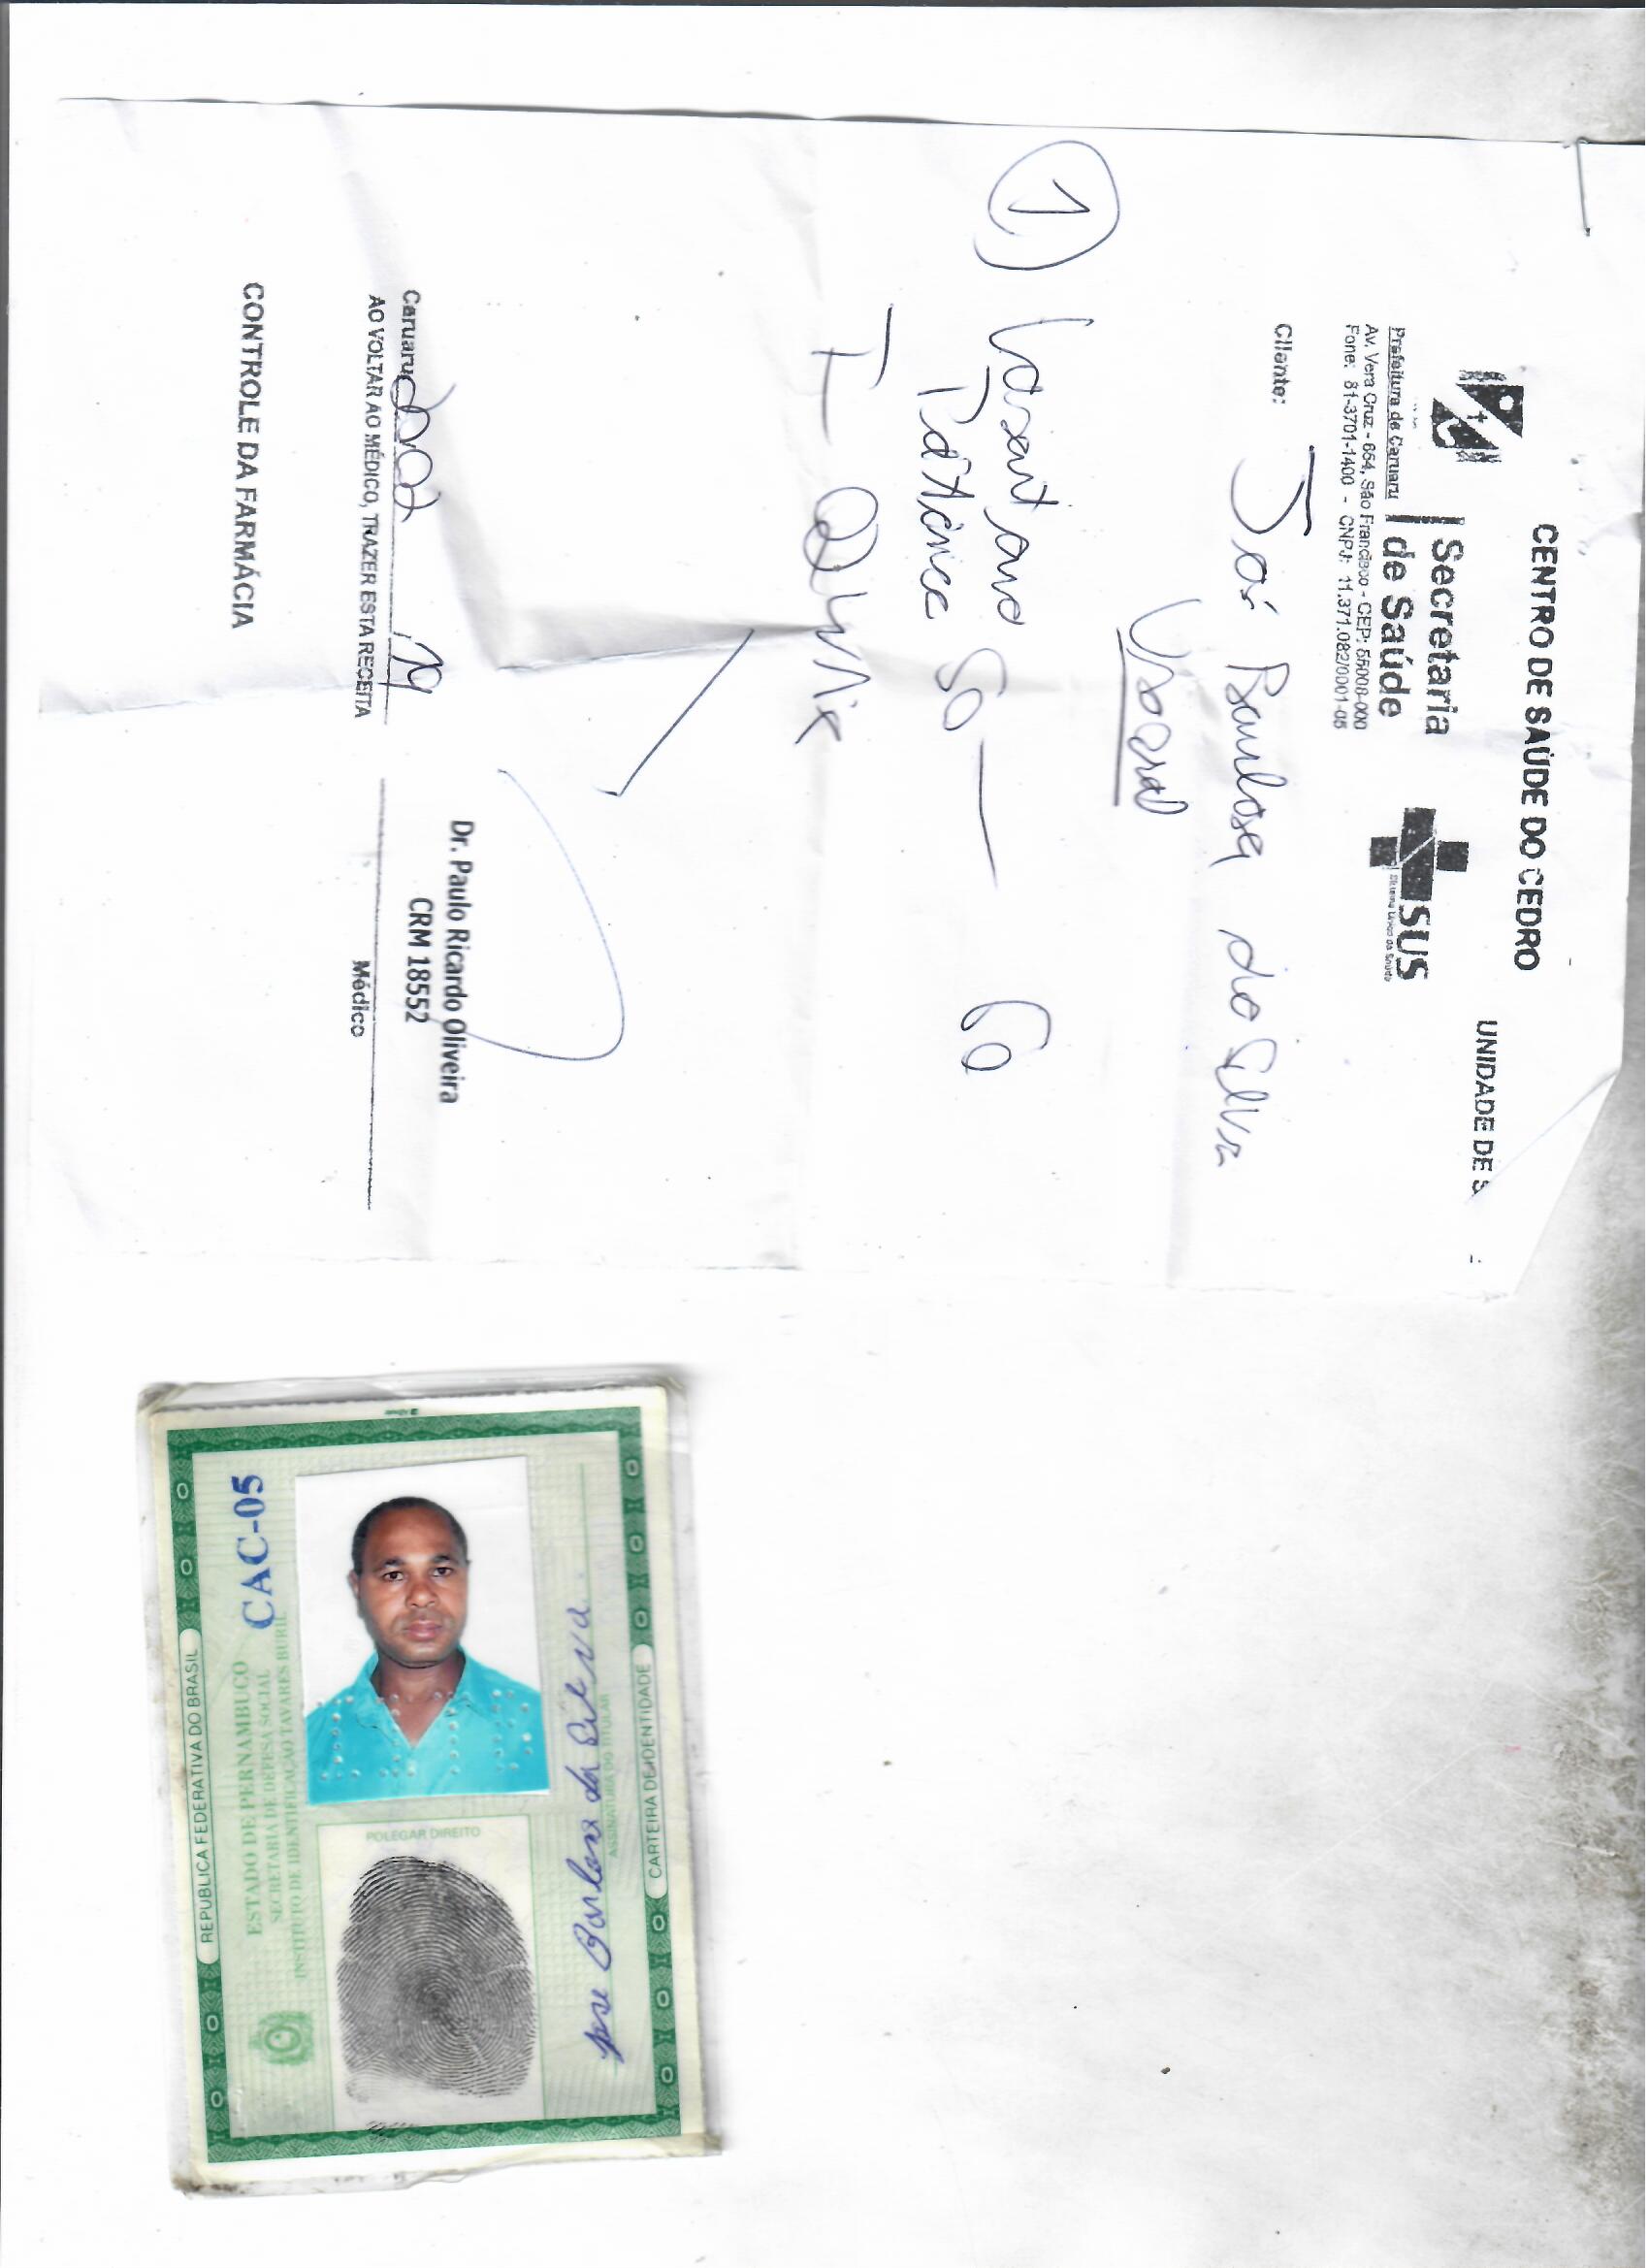 CENTRO DE SAÚDE DO CEDRO
UNIDADE DE S
Prefeitura de Caruaru
Secretaria
de Saúde
SUS
Sistema Único de Saúde
Av. Vera Cruz - 654, São Francisco - CEP: 55008-000
Fone: 81-3701-1400 - CNPJ: 11.371.082/0001-05
Cliente: José Barbosa da Silva
Uso oral
1 Losartana
Potássica 50 — 60
Caruaru
AO VOLTAR AO MÉDICO, TRAZER ESTA RECEITA
Dr. Paulo Ricardo Oliveira
CRM 18552
Médico
CONTROLE DA FARMÁCIA
REPÚBLICA FEDERATIVA DO BRASIL
ESTADO DE PERNAMBUCO
SECRETARIA DE DEFESA SOCIAL
INSTITUTO DE IDENTIFICAÇÃO TAVARES BURIL
CAC-05
POLEGAR DIREITO
Jose Barbosa da Silva
ASSINATURA DO TITULAR
CARTEIRA DE IDENTIDADE